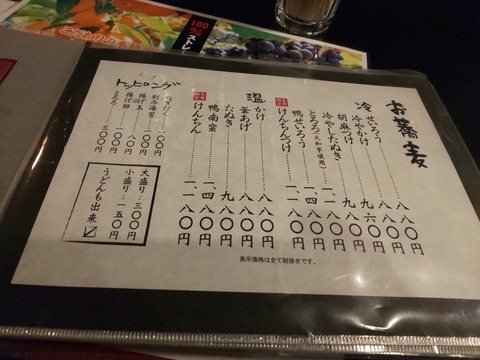 100%ストレ
お蕎麦
冷
せいろう……八八〇円
冷やかけ……八八〇円
胡麻つけ……九六〇円
冷やしたぬき……九八〇円
とろろ(大和芋使用)……一、一八〇円
鴨せいろう……一、四八〇円
けんちんつけ……一、一八〇円
温
かけ……八八〇円
釜あげ……八八〇円
たぬき……九八〇円
鴨南蛮……一、四八〇円
けんちん……一、一八〇円
トッピング
一〇〇円
刻み海苔…一〇〇円
揚げ玉……八〇円
揚げ餅…二〇〇円
とろろ…三〇〇円
大盛り：三〇〇円
小盛り：一五〇円
うどんも出来〼
表示価格は全て税抜きです。